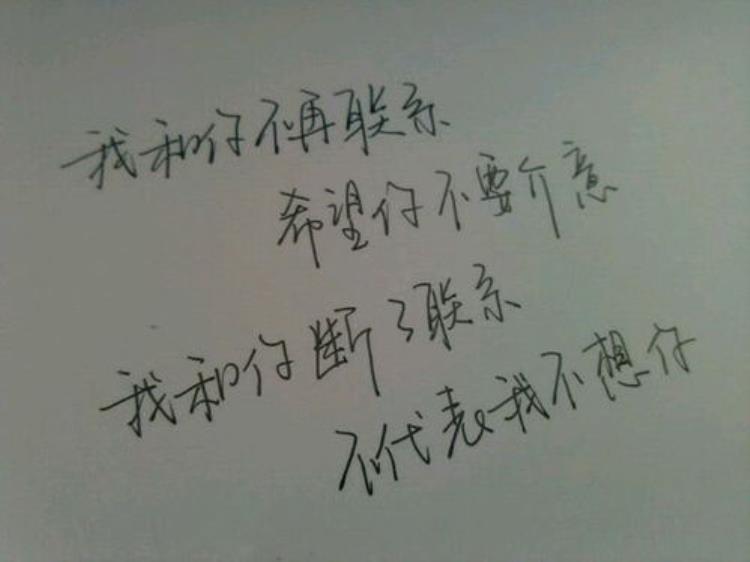 我和你不再联系
希望你不要介意
我和你断了联系
不代表我不想你